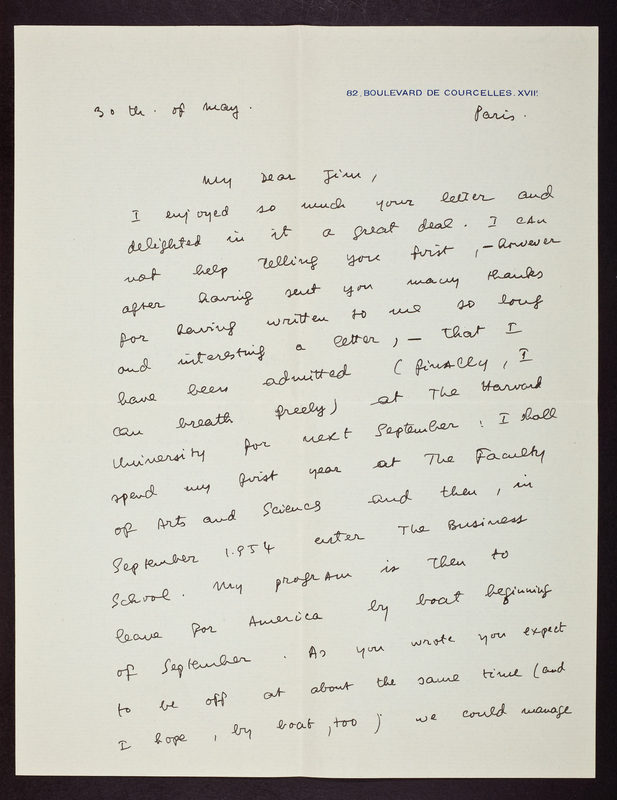 82, BOULEVARD DE COURCELLES. XVIIE
30 th. of may.
Paris.
My Dear Jim,
I enjoyed so much your letter and
delighted in it a great deal. I can
not help telling you first, – however
after having sent you many thanks
for having written to me so long
and interesting a letter, – that I
have been admitted (finally, I
can breath freely) at The Harvard
University for next September : I shall
spend my first year at The Faculty
of Arts and Sciences and then, in
September 1.954 enter The Business
School. My program is then to
leave for America by boat beginning
of September. As you wrote you expect
to be off at about the same time (and
I hope, by boat, too) we could manage